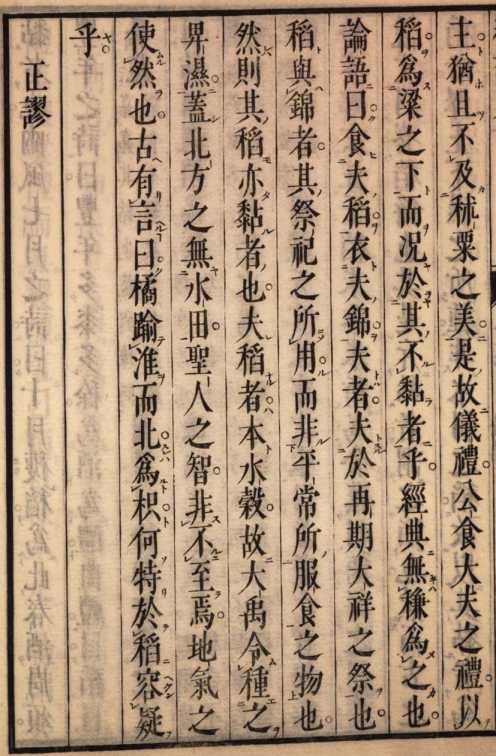 主猶且不及秫粟之美是故儀禮公食大夫之禮以
稻爲粱之下而況於其不黏者乎經典無稴爲之也
論語曰食夫稻衣夫錦夫者夫於再期大祥之祭也
稻與錦者其祭祀之所用而非平常所服食之物也
然則其稻亦黏者也夫稻者本水穀故大禹令種之
畀濕蓋北方之無水田聖人之智非不至焉地氣之
使然也古有言曰橘踰淮而北爲枳何特於稻容疑
乎
正謬